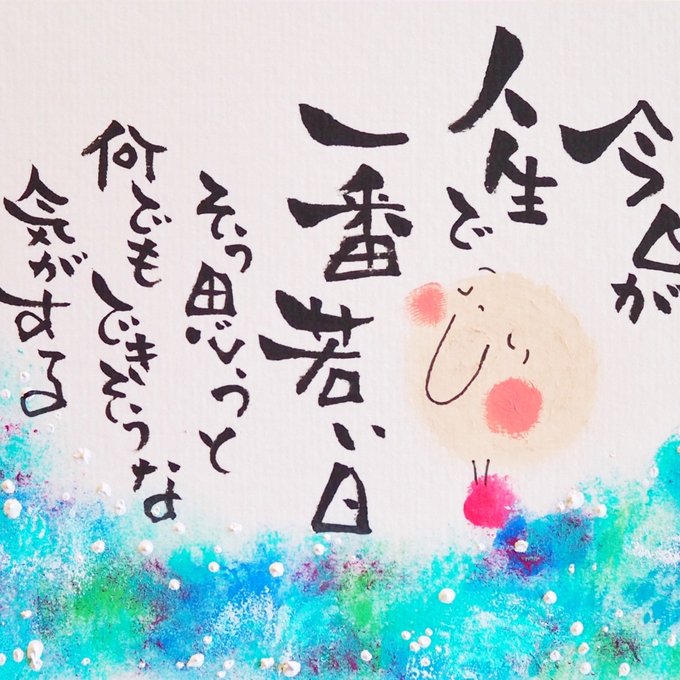 今日が
人生で
一番若い日
そう思うと
何でもできそうな
気がする